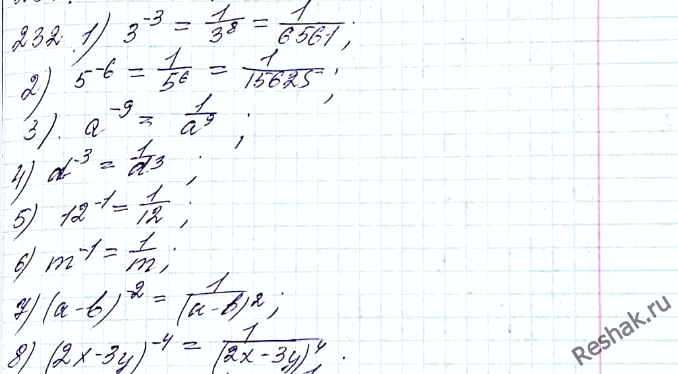 232. 1) 3^-3 = 1/3^8 = 1/6561;
2) 5^-6 = 1/5^6 = 1/15625;
3). a^-9 = 1/a^9;
4) d^-3 = 1/d^3;
5) 12^-1 = 1/12;
6) m^-1 = 1/m;
7) (a-b)^-2 = 1/(a-b)^2;
8) (2x-3y)^-4 = 1/(2x-3y)^4.
Reshak.ru